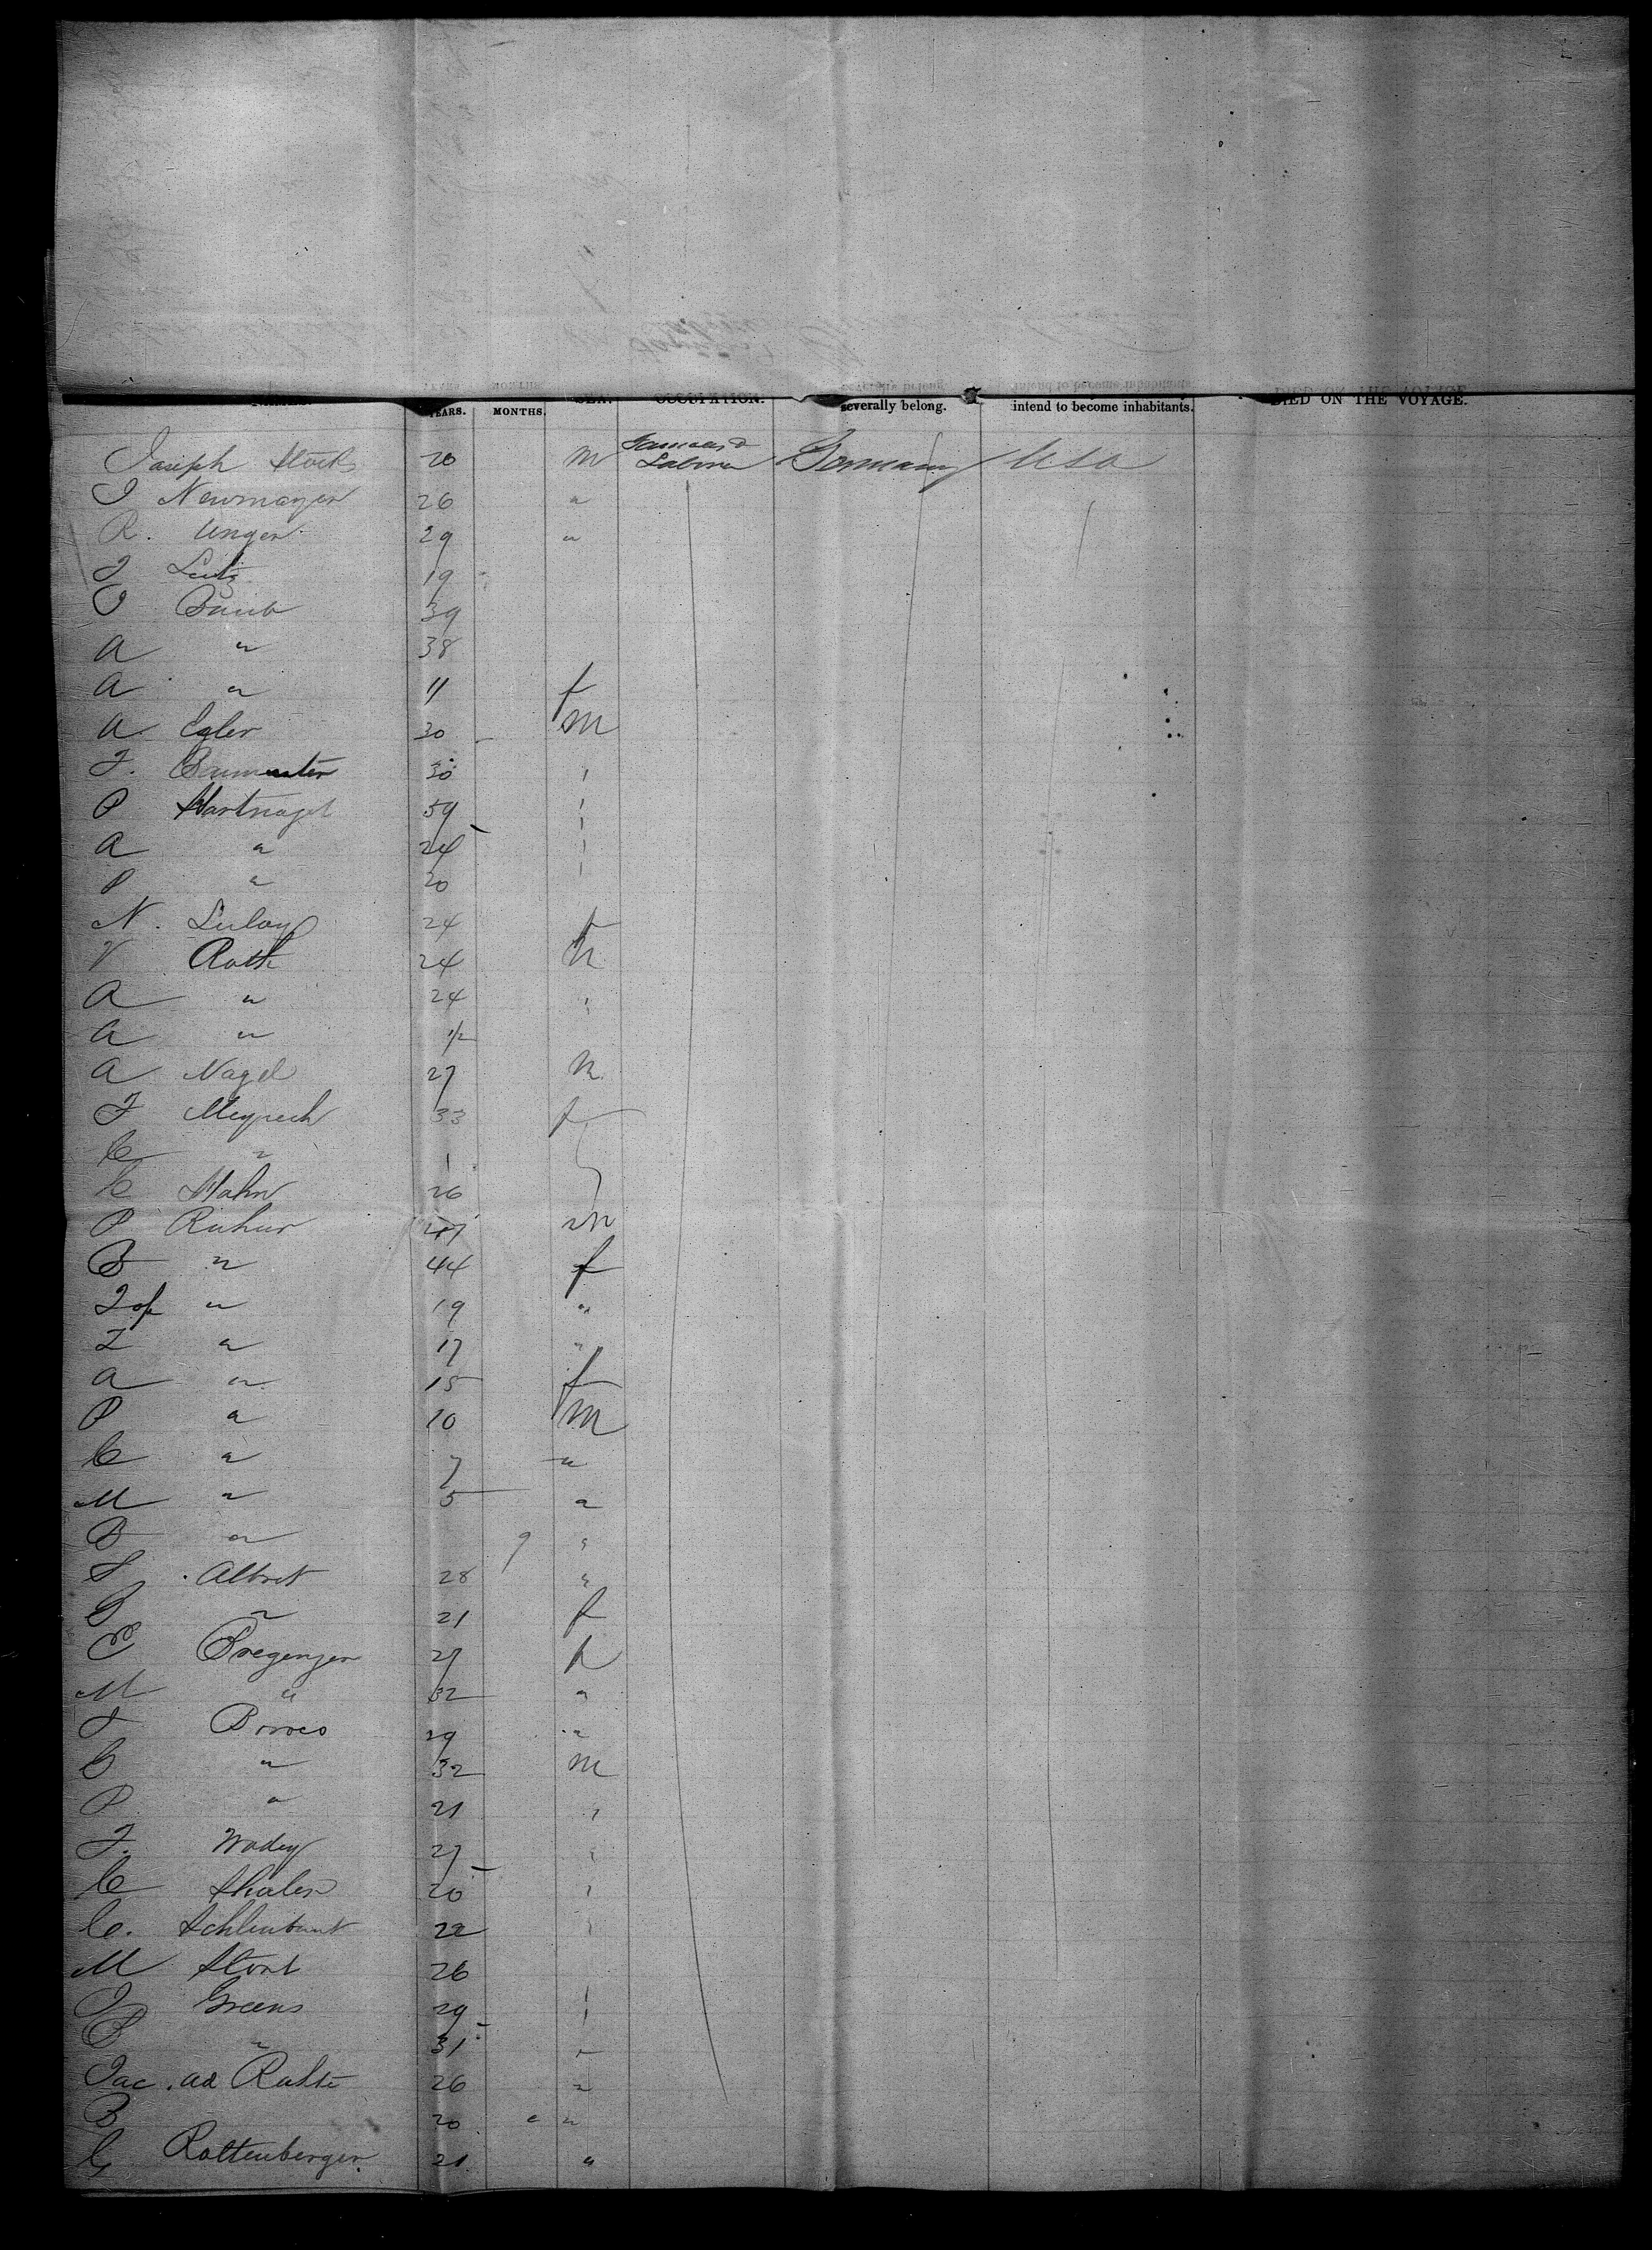 YEARS. MONTHS. SEX. OCCUPATION. severally belong. intend to become inhabitants. DIED ON THE VOYAGE.
Joseph Stock 20 m Farmer & Laborer Germany USA
J Newmayer 26 "
R. Unger 29 "
J Lutz 19
J 39
A " 38
A " 11 f
A Egler 30 m
F. 30
P Hartnagel 59
A " 24
P " 20
N. Lulay 24 f
V Roth 24 m
A " 24
A " 1/2
A Nagel 27 m
F 33 f
C " 1
C Hahn 26
P 47 m
B " 44 f
Jos " 19 "
J " 17 "
A " 15 f
P " 10 m
C " 7 "
M " 5 "
B " 9 "
S Albret 28 "
B " 21 f
C Bregenzer 27
M " 32 "
F 29 "
G " 32 m
P " 21
F. 27
C Thaler 20
C. 22
M Stork 26
J Greens 29
P " 31
Jac. ad 26 "
B 20 "
G Rottenberger 21 "